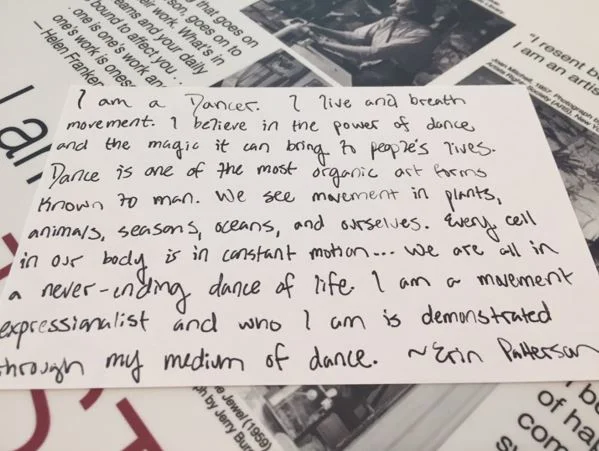 that goes on
son goes on to
their work. What's in
eams and your daily
bound to affect you . .
one is one's work an
one's work is ones
— Helen Franken
"I resent b
I am an artis
Joan Mitchell, 1957. Photograph b
I a
I am a Dancer. I live and breath
movement. I believe in the power of dance
and the magic it can bring to people's lives.
Dance is one of the most organic art forms
known to man. We see movement in plants,
animals, seasons, oceans, and ourselves. Every cell
in our body is in constant motion... we are all in
a never-ending dance of life. I am a movement
expressionalist and who I am is demonstrated
through my medium of dance. ~Erin Patterson
e Jewel (1959)
ph by Jerry Bur
of ha
com